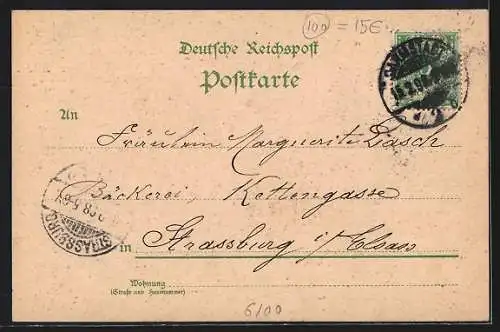 100 = 15€
Deutsche Reichspost
Postkarte
An
Fräulein Marguerite Dasch
Bäckerei, Kettengasse
STRASSBURG
in Strassburg i/Elsass
Wohnung
(Straße und Hausnummer)
6/00